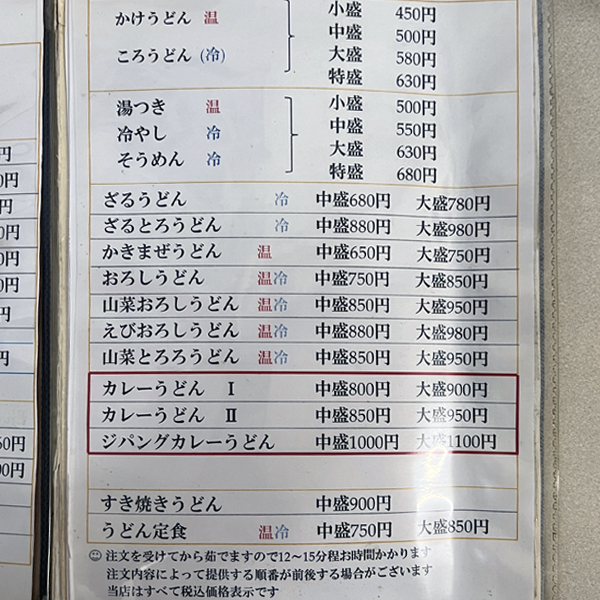 かけうどん 温 小盛 450円
中盛 500円
ころうどん (冷) 大盛 580円
特盛 630円
湯つき 温 小盛 500円
冷やし 冷 中盛 550円
そうめん 冷 大盛 630円
特盛 680円
ざるうどん 冷 中盛680円 大盛780円
ざるとろうどん 冷 中盛880円 大盛980円
かきまぜうどん 温 中盛650円 大盛750円
おろしうどん 温冷 中盛750円 大盛850円
山菜おろしうどん 温冷 中盛850円 大盛950円
えびおろしうどん 温冷 中盛880円 大盛980円
山菜とろろうどん 温冷 中盛850円 大盛950円
カレーうどん Ⅰ 中盛800円 大盛900円
カレーうどん Ⅱ 中盛850円 大盛950円
ジパングカレーうどん 中盛1000円 大盛1100円
すき焼きうどん 中盛900円
うどん定食 温冷 中盛750円 大盛850円
☺注文を受けてから茹でますので12〜15分程お時間かかります
注文内容によって提供する順番が前後する場合がございます
当店はすべて税込価格表示です